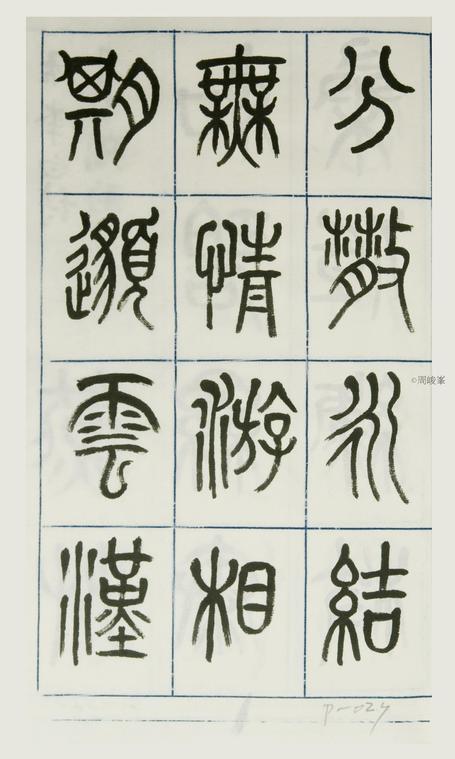 分散永結
無情游相
期邈雲漢
©周峻峯